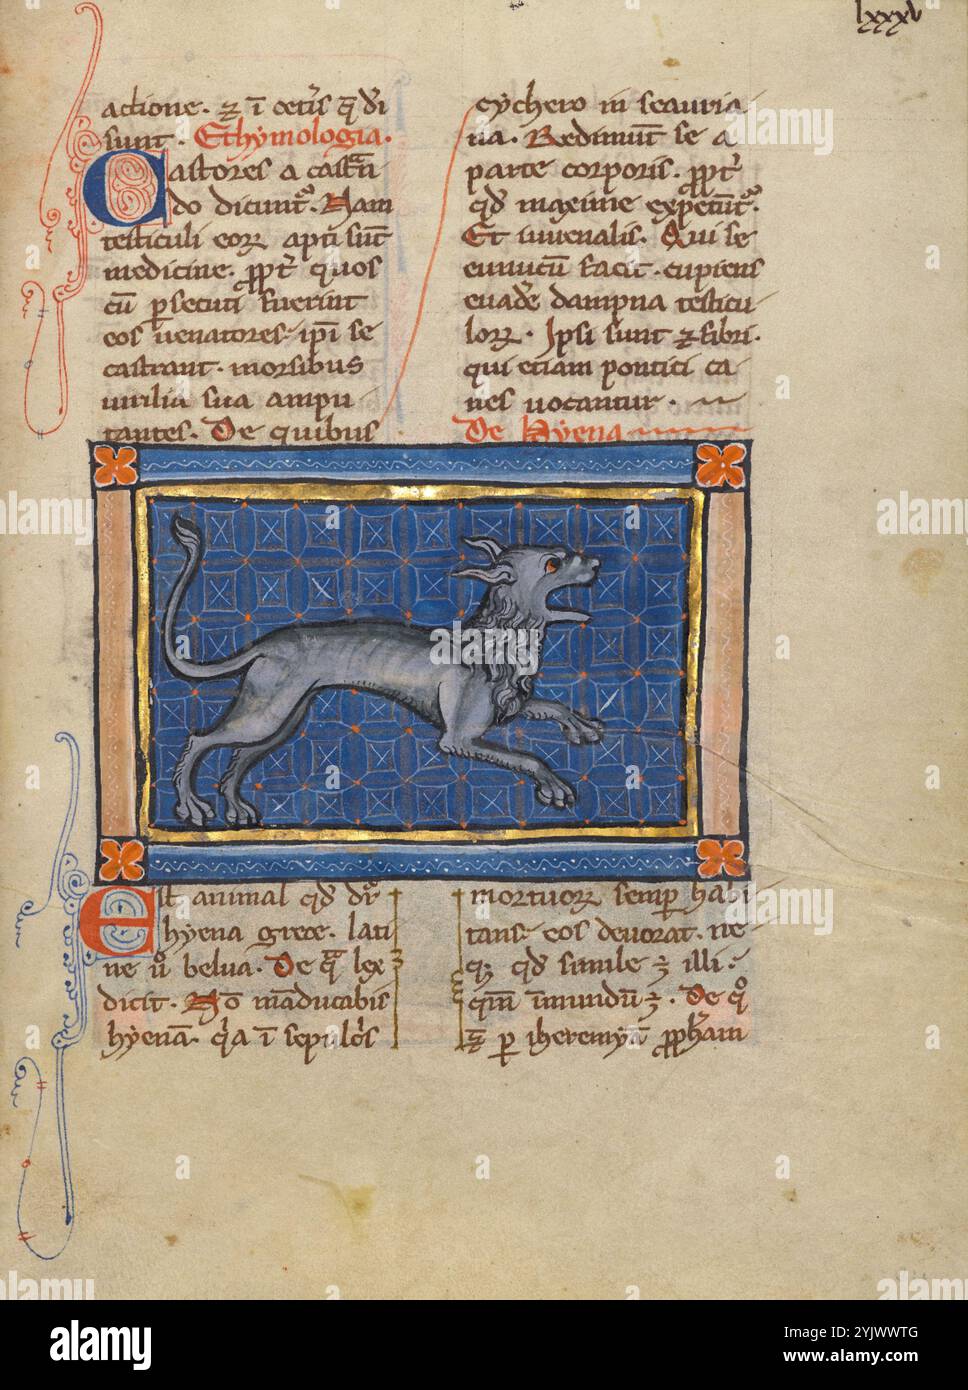 lxxxv
actione. ⁊ ī cet̾is q̄ dr̄i
sunt. Ethymologia.
Castores a castrā
do dicunt̾. Nam
testiculi eoꝝ apti sūt
medicine. ꝓpt̾ quos
cū ꝑsecuti fuerint
eos uenatores. ip̄i se
castrant. morsibus
uirilia sua ampu
tantes. De quibus
cychero in scauria
na. Redimūt se a
parte corporis. ꝓpt̾
qd̄ maxime expetūt̾.
Et iuuenalis. Qui se
eunucū facit. cupiens
euadē dampna testicu
loꝝ. Ipsi sunt ⁊ fibri.
qui etiam pontici ca
nes uocantur.
De hyena
Est animal qd̄ dr̄
hyena grece. lati
ne u̾o belua. De qā lex
dicit. Nō māducabis
hyenā. qīa ī sepulc̾s
mortuoꝝ semꝑ habi
tans eos deuorat. ne
qꝫ qd̄ simile ē illi.
qm̄ īmundū ē. De qo
⁊ ꝑ iheremyā ꝓph̄am
alamy
Image ID: 2YJWWTG
www.alamy.com